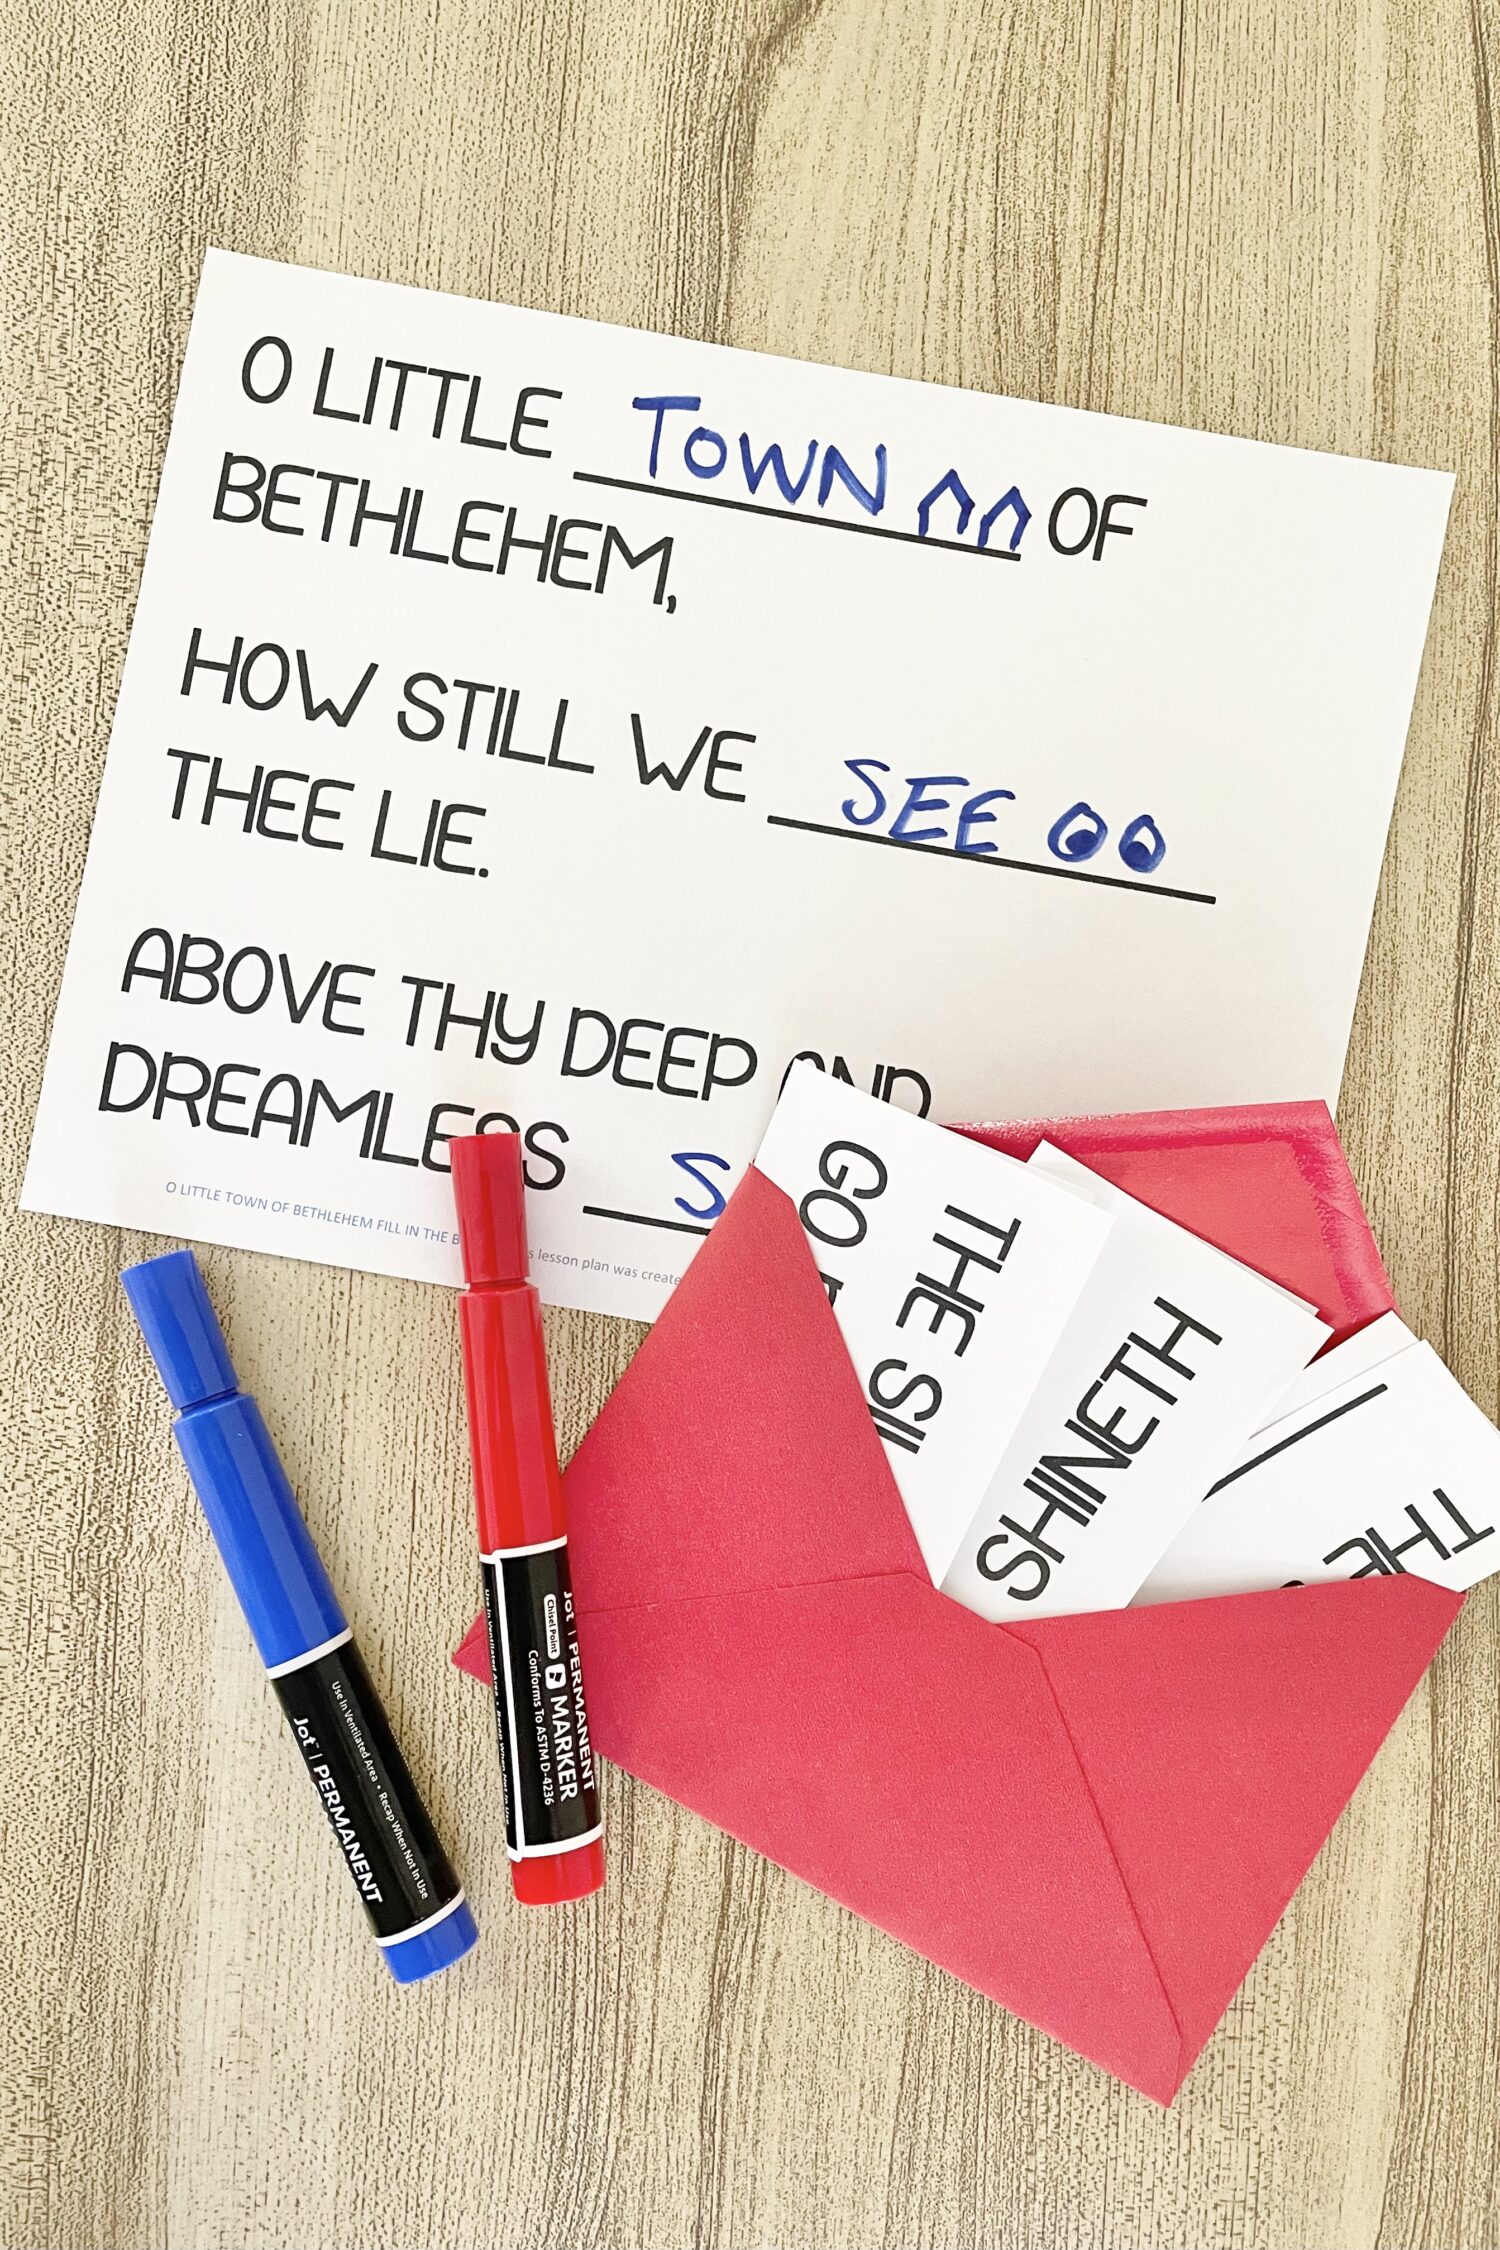 O LITTLE TOWN OF
BETHLEHEM,
HOW STILL WE SEE
THEE LIE.
ABOVE THY DEEP AND
DREAMLESS S
O LITTLE TOWN OF BETHLEHEM FILL IN THE B
lesson plan was create
GO
THE SIL
SHINETH
THE
Jot | PERMANENT
Use In Ventilated Area • Recap When Not In Use
Jot | PERMANENT
Chisel Point MARKER
Conforms To ASTM D-4236
Use In Ventilated Area • Recap When Not In Use